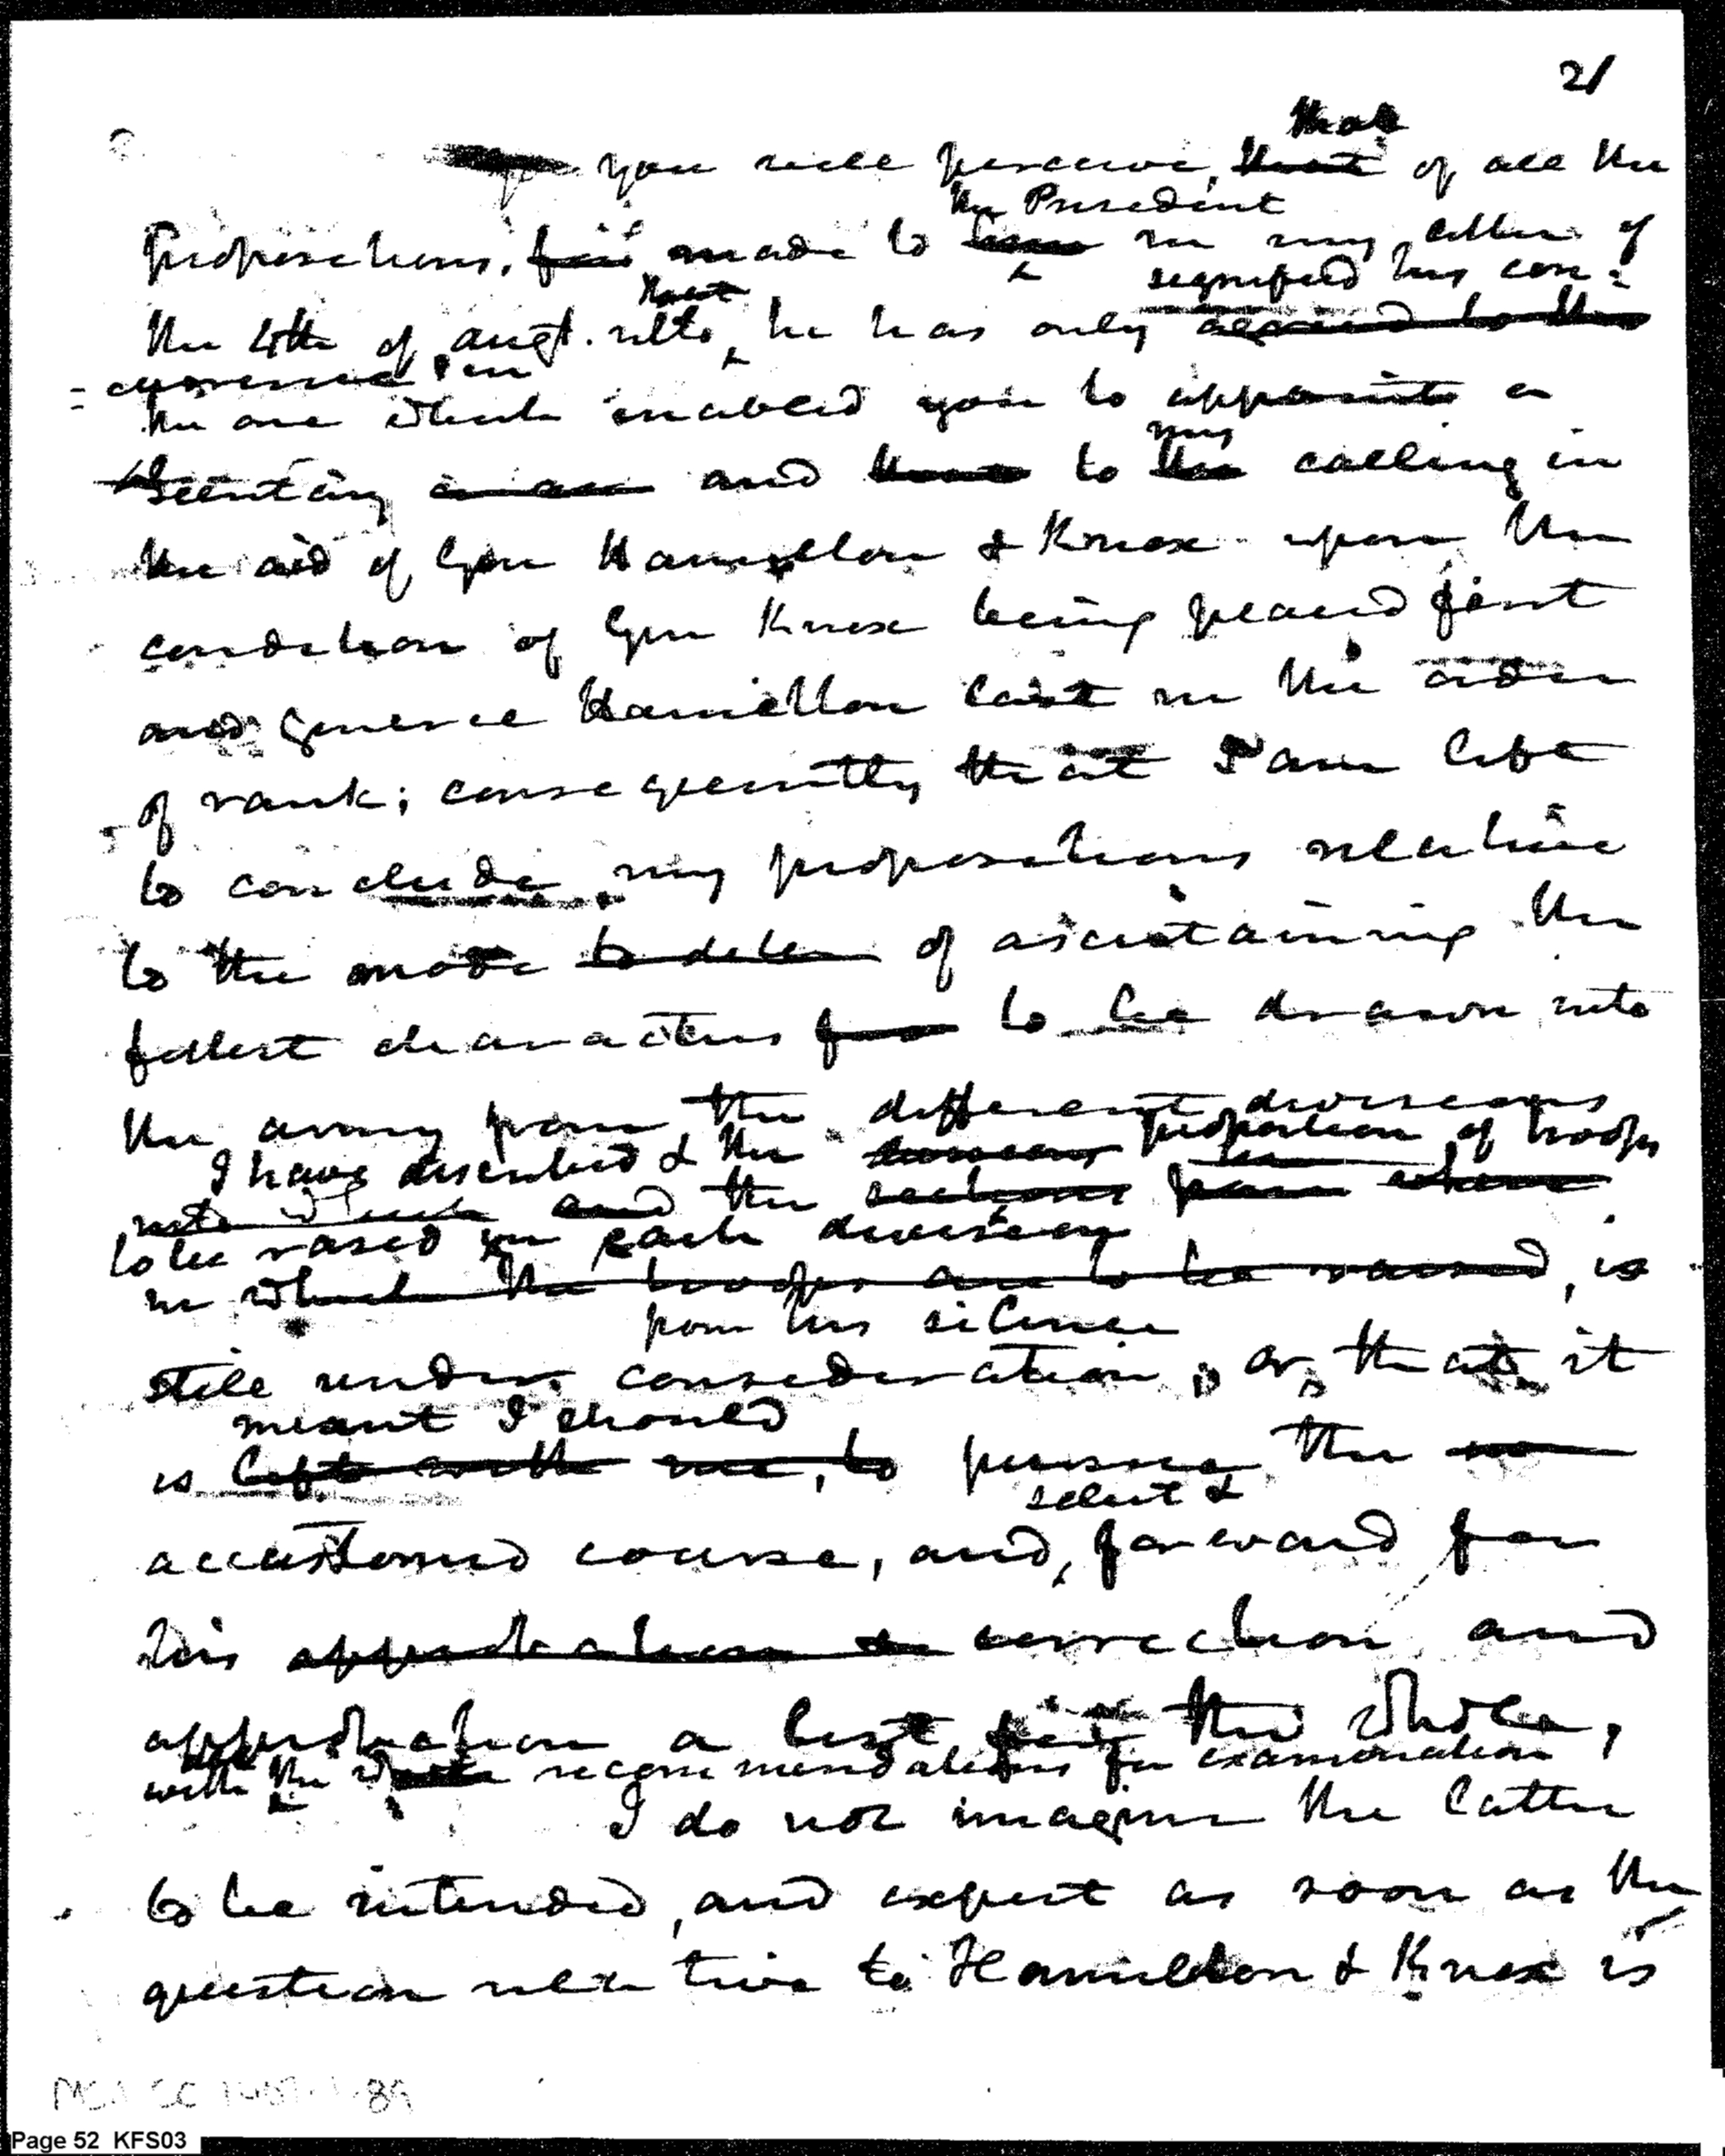 21
that
you will perceive, that of all the
the President
propositions, made to him in my letter of
that signified his con=
the 4th of augt. ulto, he has only agreed to the
=currence in
the one which enabled you to appoint a
my
Secretary and to the calling in
the aid of Gen Hamilton & Knox upon the
condition of Gen Knox being placed first
and General Hamilton last in the order
of rank; consequently that I am left
to conclude my propositions relative
to the mode to deter of ascertaining the
fittest characters for to be drawn into
the army from the different divisions
I have described & the proportion of troops
into which and the sections from where
to be raised in each division
in which the troops are to be raised, is
from his silence
still under consideration, or, that it
meant I should
is left with me, to pursue the
select &
accustomed course, and, forward for
his approbation or correction and
approbation a list for the whole,
with the recommendations for examination
I do not imagine the latter
to be intended, and expect as soon as the
question relative to Hamilton & Knox is
Page 52 KFS03